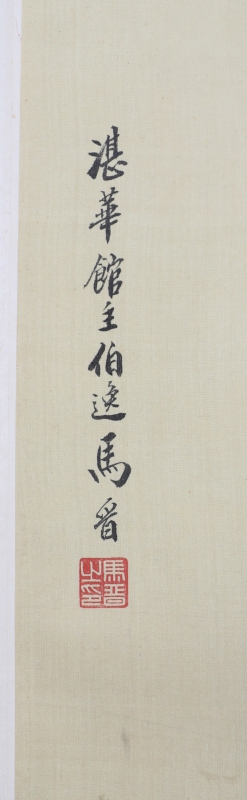 湛華館主伯逸馬晉
馬晉之印